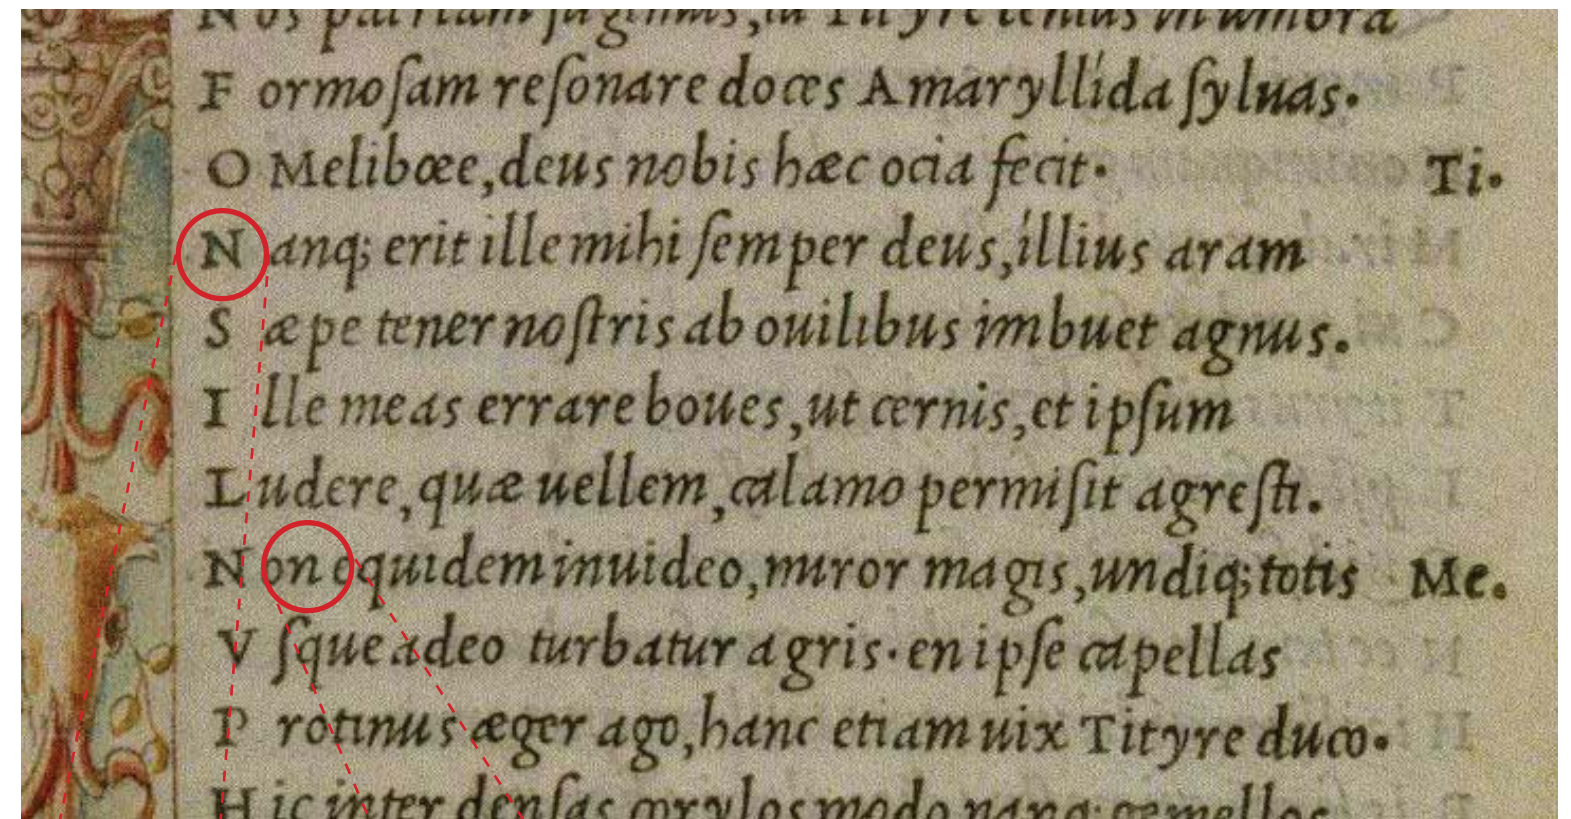 Nos patriam fugimus, tu Tityre lentus in umbra
F ormoſam reſonare doces Amaryllída ſyluas.
O Meliboee, deus nobis hæc ocia fecit. Ti.
N anq; erit ille mihi ſemper deus, íllius aram
S æpe tener noſtris ab ouilibus imbuet agnus.
I lle meas errare boues, ut cernis, et ipſum
L udere, quæ uellem, calamo permiſit agreſti.
N on equidem inuideo, miror magis, undiq; totis Me.
V ſque adeo turbatur agris. en ipſe capellas
P rotinus æger ago, hanc etiam uix Tityre duco.
H ic inter denſas corylos modo nanq; gemellos